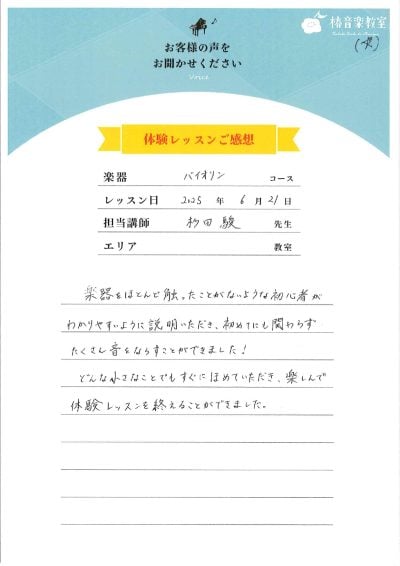 椿音楽教室
お客様の声を
お聞かせください
Voice
体験レッスンご感想
楽器 バイオリン コース
レッスン日 2025 年 6 月 21 日
担当講師 杉田 駿 先生
エリア 教室
楽器をほとんど触ったことがないような初心者が
わかりやすいように説明いただき、初めてにも関わらず
たくさん音をならすことができました!
どんな小さなことでもすぐにほめていただき、楽しんで
体験レッスンを終えることができました。